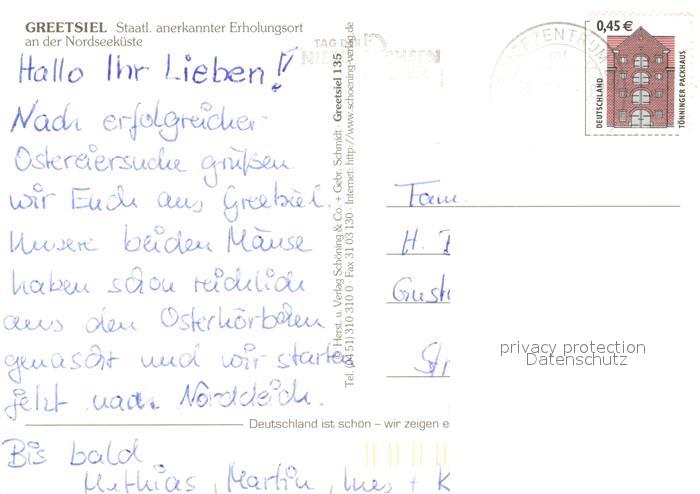 GREETSIEL Staatl. anerkannter Erholungsort
an der Nordseeküste
Hallo Ihr Lieben!
Nach erfolgreicher
Ostereiersuche grüßen
wir Euch aus Greetsiel.
Unsere beiden Mäuse
haben schon reichlich
aus den Osterkörbchen
genascht und wir starten
jetzt nach Norddeich.
Bis bald
Mathias, Martin, Ines + K
© Herst. u. Verlag Schöning & Co. + Gebr. Schmidt · Greetsiel 135
Tel. (04 51) 310 310 0 · Fax 31 03 130 · Internet: http://www.schoening-verlag.de
Deutschland ist schön – wir zeigen e
TAG DER
BRIEFZENTRUM
0,45 €
DEUTSCHLAND
TÖNNINGER PACKHAUS
Fam.
H.
privacy protection
Datenschutz